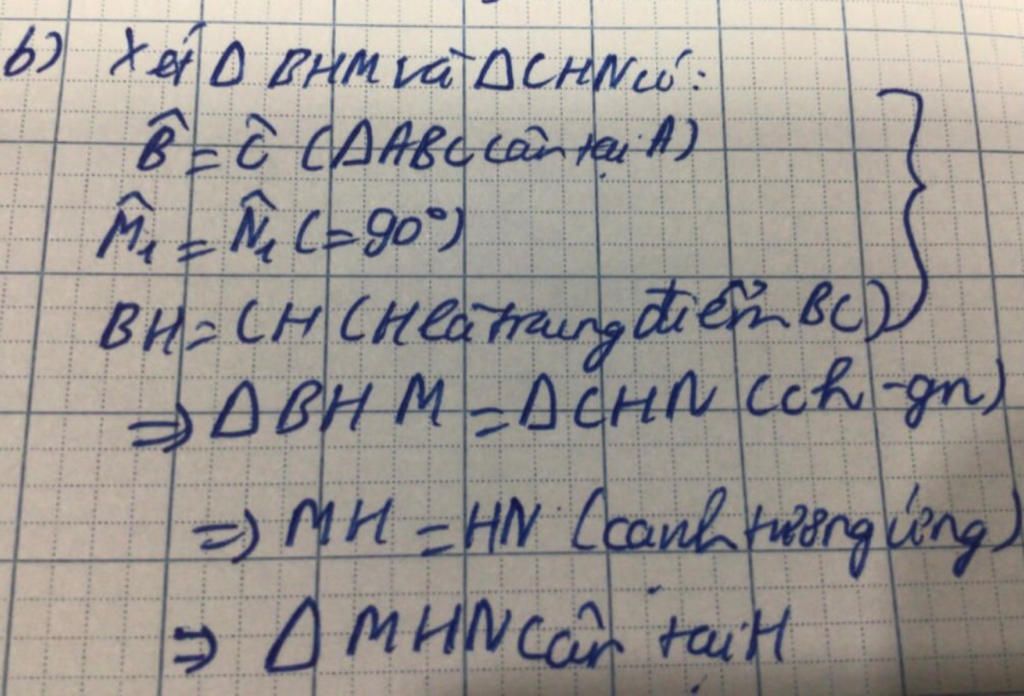 b) Xét Δ BHM và ΔCHN có:
B̂ = Ĉ (ΔABC cân tại A)
M̂₁ = N̂₁ (=90°)
BH = CH (H là trung điểm BC)
=> Δ BHM = ΔCHN (ch-gn)
=> MH = HN (cạnh tương ứng)
=> Δ MHN cân tại H